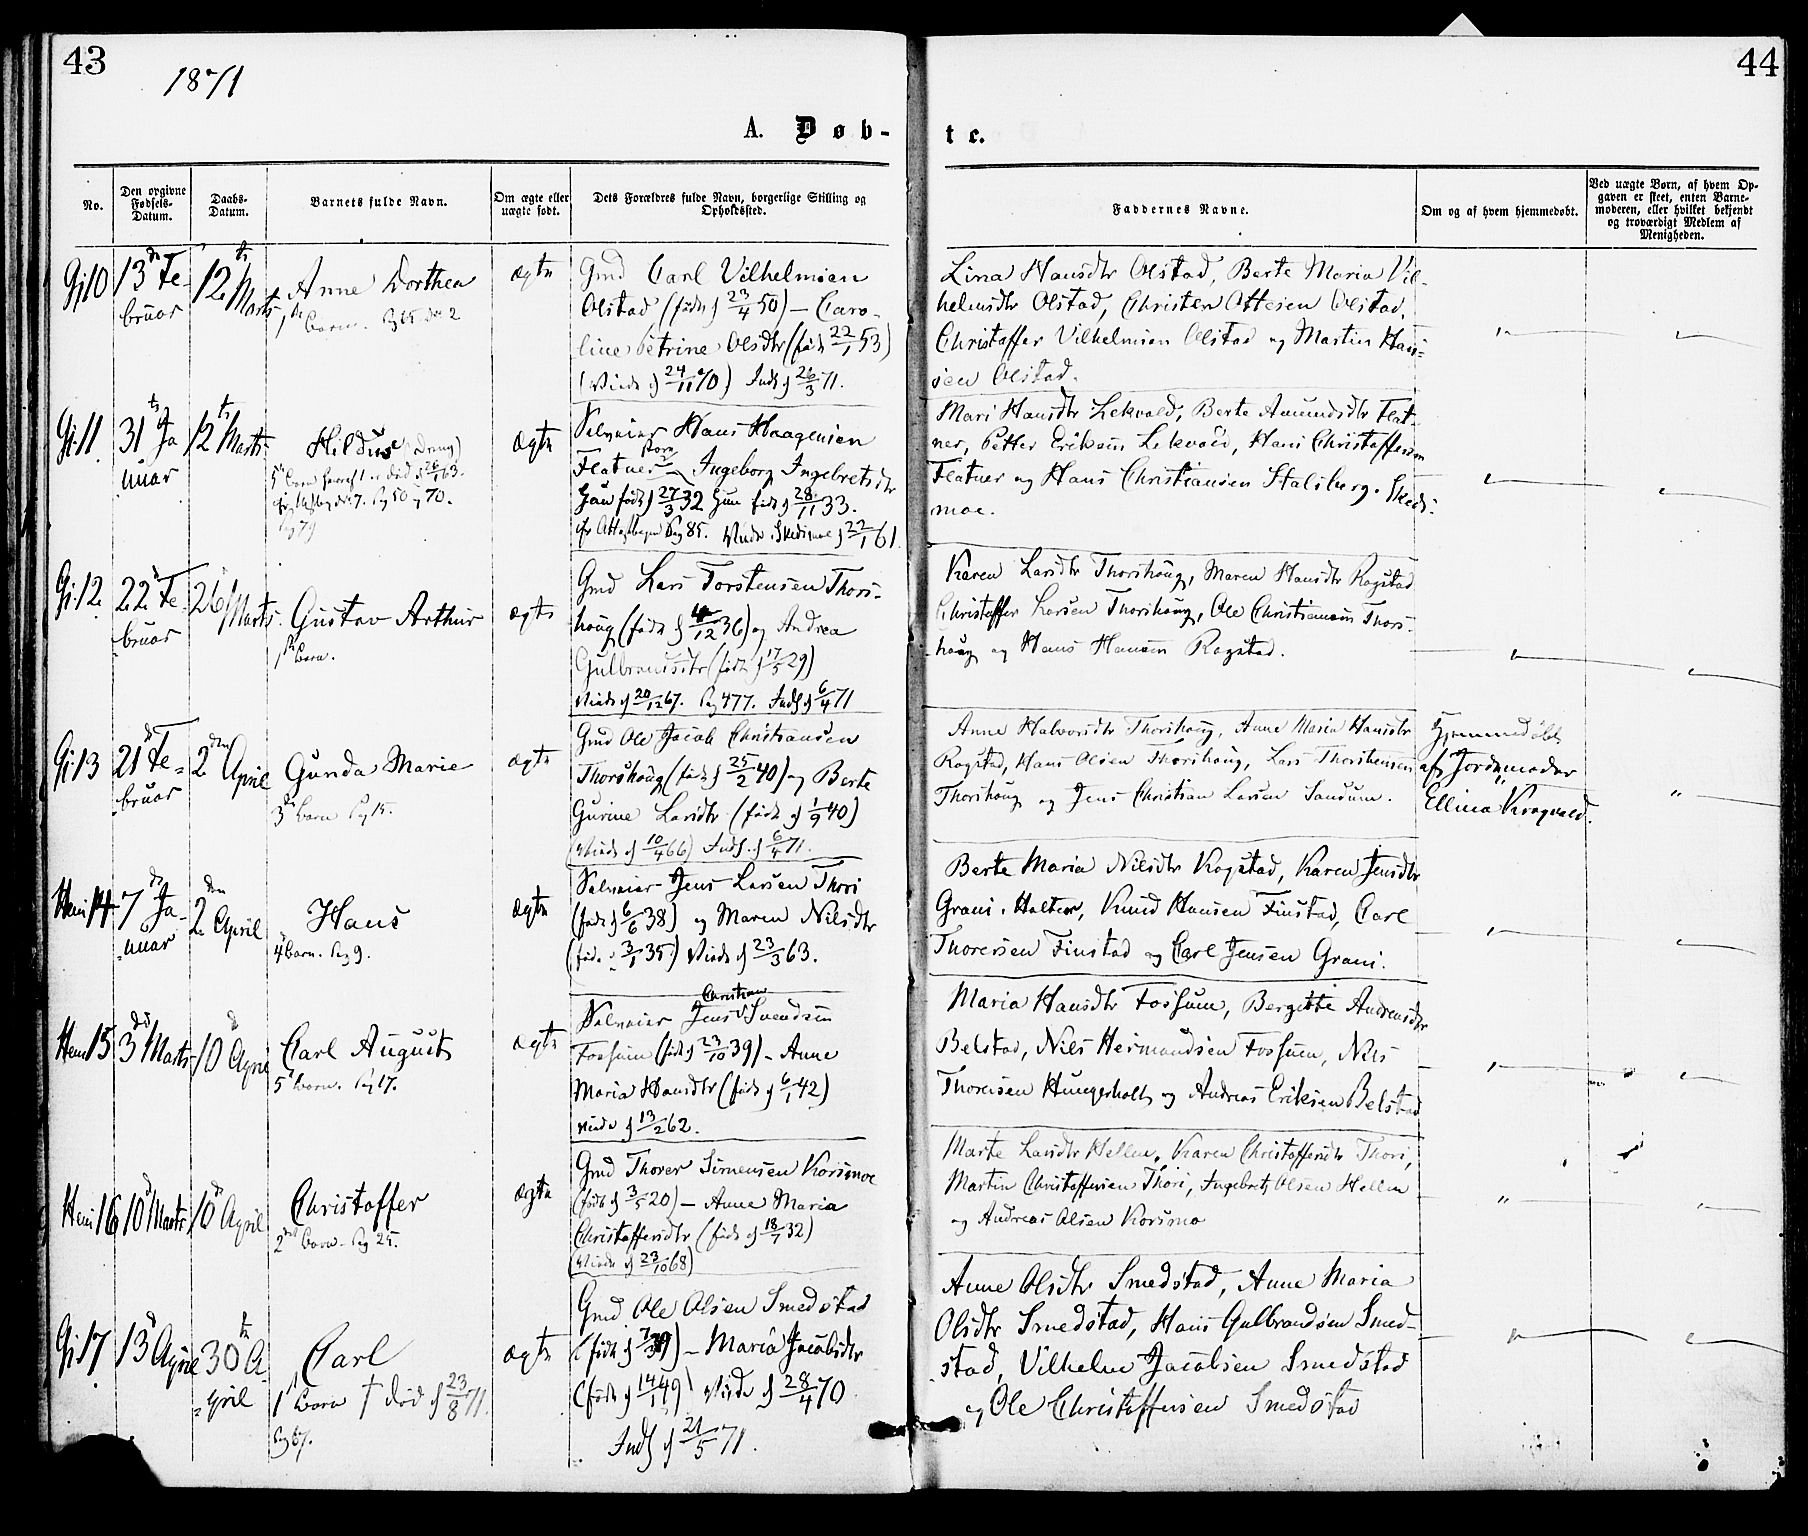 43
44
1871
A. Døb-
te.
No.
Den opgivne
Fødsels-
Datum.
Daabs-
Datum.
Barnets fulde Navn.
Om ægte eller
uægte født.
Dets Forældres fulde Navn, borgerlige Stilling og
Opholdssted.
Faddernes Navne.
Om og af hvem hjemmedøbt.
Ved uægte Børn, af hvem Op-
gaven er skeet, enten Barne-
moderen, eller hvilket bekjendt
og troværdigt Medlem af
Menigheden.
Gi 10
13de Fe-
bruar
12te Marts
Anne Dorthea
1ste Barn.
ægte
Gmd Carl Vilhelmsen
Olstad (født d 23/4 50) – Caro-
line Petrine Olsdtr (født 22/1 53)
(Viede d 24/11 70) Indf d 26/3 71.
Lina Hansdtr Olstad, Berte Maria Vil-
helmsdtr Olstad, Christen Ottesen Olstad,
Christoffer Vilhelmsen Olstad og Martin Han-
sen Olstad.
Gi 11
31te Ja
nuar
12te Marts
Hildus (Dreng)
ægte
Selveier Hans Haagensen
Flatner – Ingeborg Ingebretsdtr
Han født d 27/3 32 Hun født d 28/11 33.
Viede i Skedsmoe d 22/1 61.
Mari Hansdtr Lekvold, Berte Amundsdtr Flat-
ner, Petter Eriksen Lekvold, Hans Christoffersen
Flatner og Hans Christiansen Stalsberg. Skeds-
moe.
Gi 12
22de Fe-
bruar
26 Marts.
Gustav Arthur
1ste Barn.
ægte
Gmd Lars Torstensen Thors-
houg (født d /12 36) og Andrea
Gulbrandsdtr (født d 17/5 29)
Viede d 20/12 67. Pag 477. Indf d 6/4 71
Karen Larsdtr Thorshoug, Maren Hansdtr Rogstad
Christoffer Larsen Thorshoug, Ole Christiansen Thors-
houg og Hans Hansen Rogstad.
Gi 13
21de Fe-
bruar
2den April
Gunda Marie
3die Barn
ægte
Gmd Ole Jacob Christiansen
Thorshoug (født d 25/2 40) og Berte
Gurine Larsdtr (født d 1/9 40)
(Viede d 10/4 66) Indf. d 6/4 71.
Anne Halvorsdtr Thorshoug, Anne Maria Hansdtr
Rogstad, Hans Olsen Thorshoug, Lars Thorstensen
Thorshoug og Jens Christian Larsen Sandum.
Hjemmedøbt
af Jordemoder
Ellina Kragvald.
Hem 14
7de Ja-
nuar
2den April
Hans
4 Barn. Pag 9.
ægte
Selveier Jens Larsen Thori
(født d 6/6 38) og Maren Nilsdtr
(født d 3/1 35) Viede d 23/3 63.
Berte Maria Nilsdtr Rogstad, Karen Jensdtr
Grani. Halter, Knud Hansen Finstad, Carl
Thorersen Finstad og Carl Jensen Grani.
Hem 15
3die Marts
10de April
Carl August
5te Barn. Pag 17.
ægte
Christian
Selveier Jens Svendsen
Fossum (født d 23/10 39) – Anne
Maria Hansdtr (født d 6/1 42)
Viede d 13/2 62.
Maria Hansdtr Fossum, Bergitte Andreasdtr
Belstad, Nils Hermandsen Fossum, Nils
Thoresen Hungerholt og Andreas Eriksen Belstad
Hem 16
10de Marts
10de April
Christoffer
2det Barn – Pag 25.
ægte
Gmd Thorer Simensen Korsmoe
(født d 3/5 20) – Anne Maria
Christoffersdtr (født d 18/1 32)
(Viede d 23/10 68)
Marte Larsdtr Hellen, Karen Christoffersdtr Thori,
Martin Christoffersen Thori, Ingebret Olsen Hellen
og Andreas Olsen Korsmo
Gi 17
13de April
30te A-
pril
Carl
1ste Barn † død d 23/8 71.
Pag 67.
ægte
Gmd Ole Olsen Smedstad
– Maria Jacobsdtr
(født d 14/1 49) Viede d 28/4 70
Indf d 21/5 71.
Anne Olsdtr Smedstad, Anne Maria
Olsdtr Smedstad, Hans Gulbrandsen Smed-
stad, Vilhelm Jacobsen Smedstad
og Ole Christoffersen Smedstad